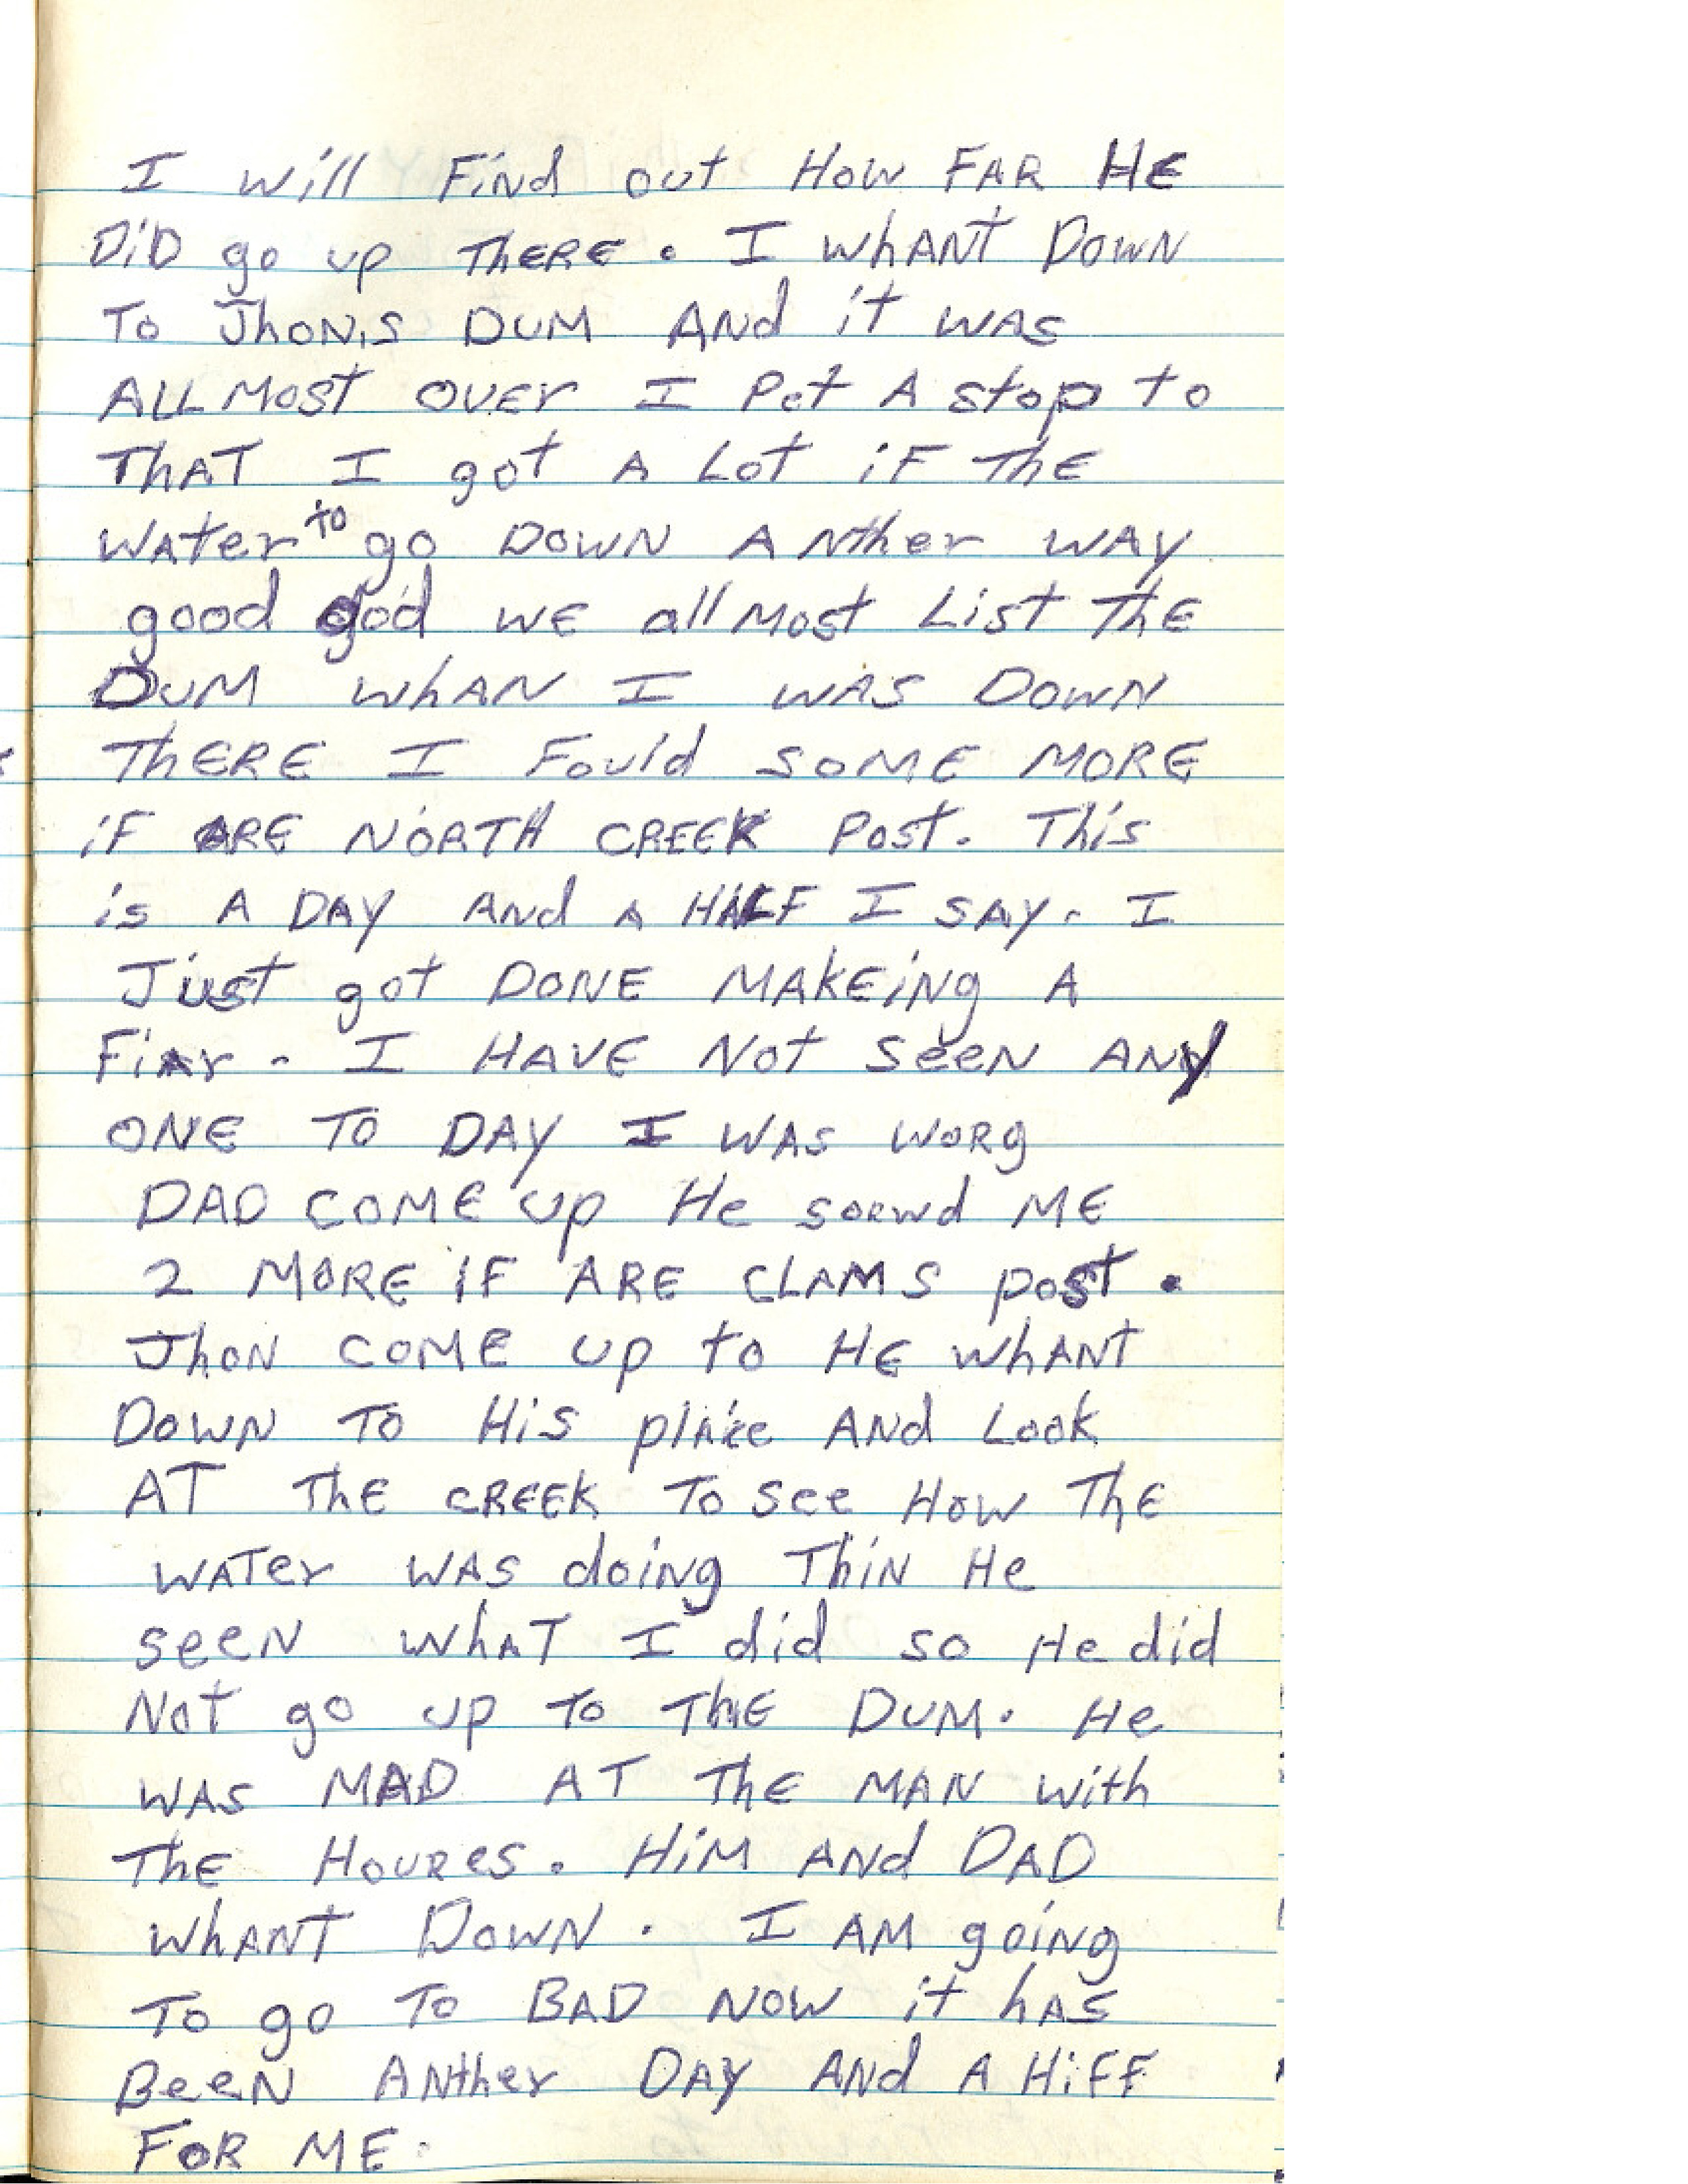 I will Find out How FAR HE
DiD go up THERE. I whANT DOWN
To JhON,s DUM ANd it WAS
ALLMOST OVEr I Pet A stop to
THAT I got A Lot iF THE
WATer to go DOWN ANther WAY
good god WE allMost List THE
DUM whAN I WAS DOWN
THERE I Fouid SOME MORE
iF ARE NORTH CREEK Post. This
is A DAY ANd A HALF I SAY. I
Just got DONE MAKEiNg A
FiAr. I HAVE Not seeN ANy
ONE TO DAY I WAS WORg
DAD COME up He soewd ME
2 MORE iF ARE CLAMS post.
JhoN COME up to HE whANT
DOWN TO HiS plAce ANd Look
AT THE CREEK To see How THE
WATer WAS doiNg ThiN He
seeN whAT I did so He did
Not go up To THE DUM. He
WAS MAD AT THE MAN with
THE HOURes. HiM ANd DAD
whANT DOWN. I AM goiNg
To go To BAD NOW it hAS
BeeN ANther DAY ANd A HiFF
FOR ME.